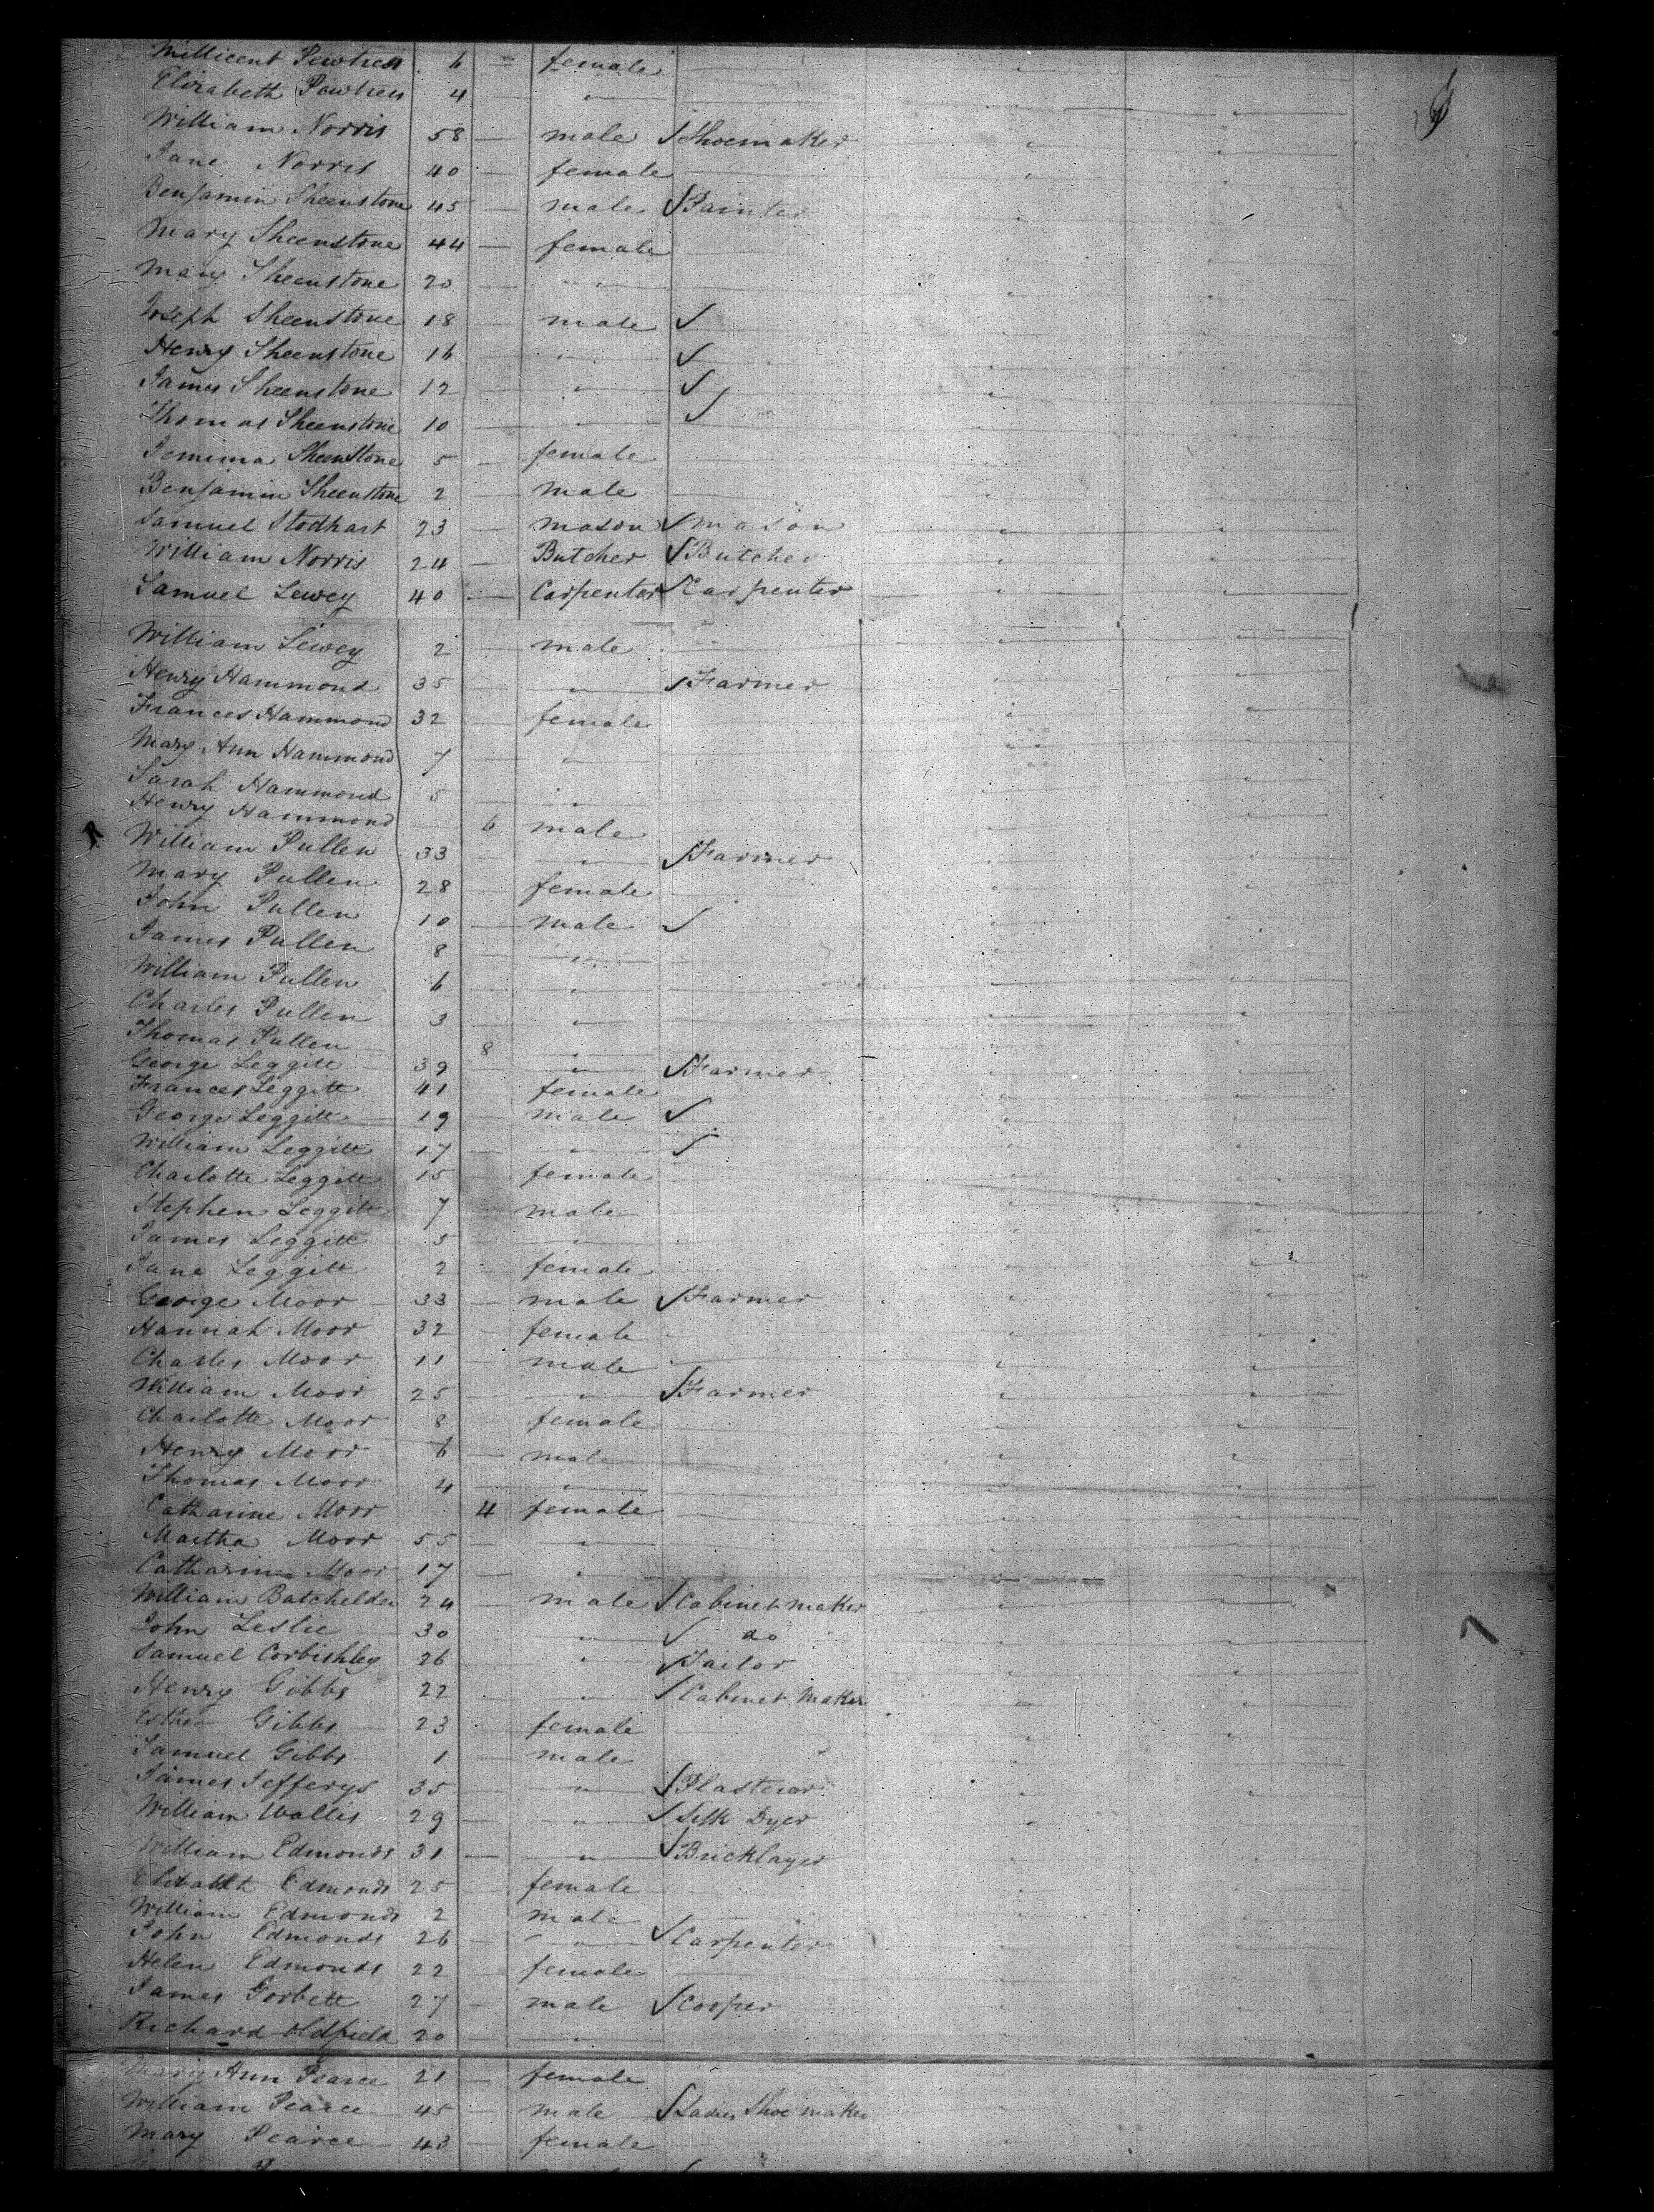 Millicent Pewtress 6 — female
Elizabeth Pewtress 4 "
William Norris 58 — male Shoemaker
Jane Norris 40 — female
Benjamin Sheenstone 45 — male Painter
Mary Sheenstone 44 — female
Mary Sheenstone 20 — "
Joseph Sheenstone 18 — male
Henry Sheenstone 16 — "
James Sheenstone 12 — "
Thomas Sheenstone 10 — "
Jemima Sheenstone 5 — female
Benjamin Sheenstone 2 — male
Samuel Stodhart 23 — mason mason
William Norris 24 — Butcher Butcher
Samuel Lewey 40 — Carpenter Carpenter
William Lewey 2 — male
Henry Hammond 35 — " Farmer
Frances Hammond 32 — female
Mary Ann Hammond 7 — "
Sarah Hammond 5 — "
Henry Hammond — 6 male
William Pullen 33 — " Farmer
Mary Pullen 28 — female
John Pullen 10 — male
James Pullen 8 — "
William Pullen 6 — "
Charles Pullen 3 — "
Thomas Pullen 8 "
George Leggitt 39 — " Farmer
Frances Leggitt 41 female
George Leggitt 19 — male
William Leggitt 17 — "
Charlotte Leggitt 15 female
Stephen Leggitt 7 male
James Leggitt 5 "
Jane Leggitt 2 female
George Moor 33 — male Farmer
Hannah Moor 32 — female
Charles Moor 11 — male
William Moor 25 — " Farmer
Charlotte Moor 8 female
Henry Moor 6 — male
Thomas Moor 4 — "
Catharine Moor 4 female
Martha Moor 55 — "
Catharine Moor 17 — "
William Batchelder 24 — male Cabinet maker
John Leslie 30 — " do
Samuel Corbishley 26 " Tailor
Henry Gibbs 22 — " Cabinet Maker
Esther Gibbs 23 — female
Samuel Gibbs 1 — male
James Jefferys 35 — " Plasterer
William Wallis 29 — " Silk Dyer
William Edmonds 31 — " Bricklayer
Elizabeth Edmonds 25 — female
William Edmonds 2 — male
John Edmonds 26 — " Carpenter
Helen Edmonds 22 — female
James Gorbett 27 — male Cooper
Richard Oldfield 20 — "
Ann Pearce 21 — female
William Pearce 45 — male Ladies Shoe maker
Mary Pearce 43 — female